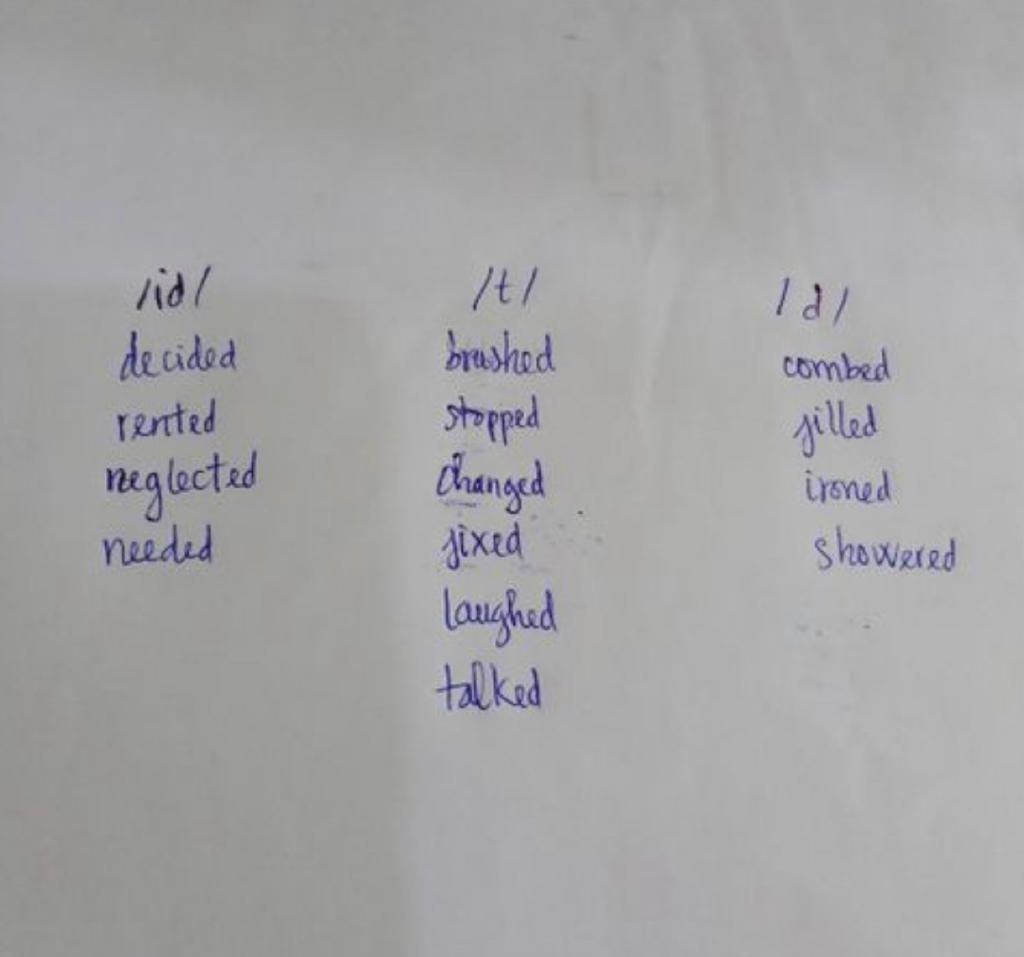 /id/ /t/ /d/
decided brushed combed
rented stopped filled
neglected changed ironed
needed fixed showered
laughed
talked